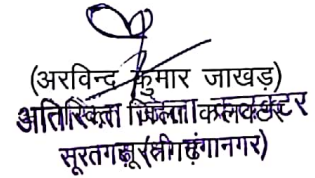 (अरविन्द कुमार जाखड़)
अतिरिक्त जिला कलक्टर
सूरतगढ़ (श्रीगंगानगर)